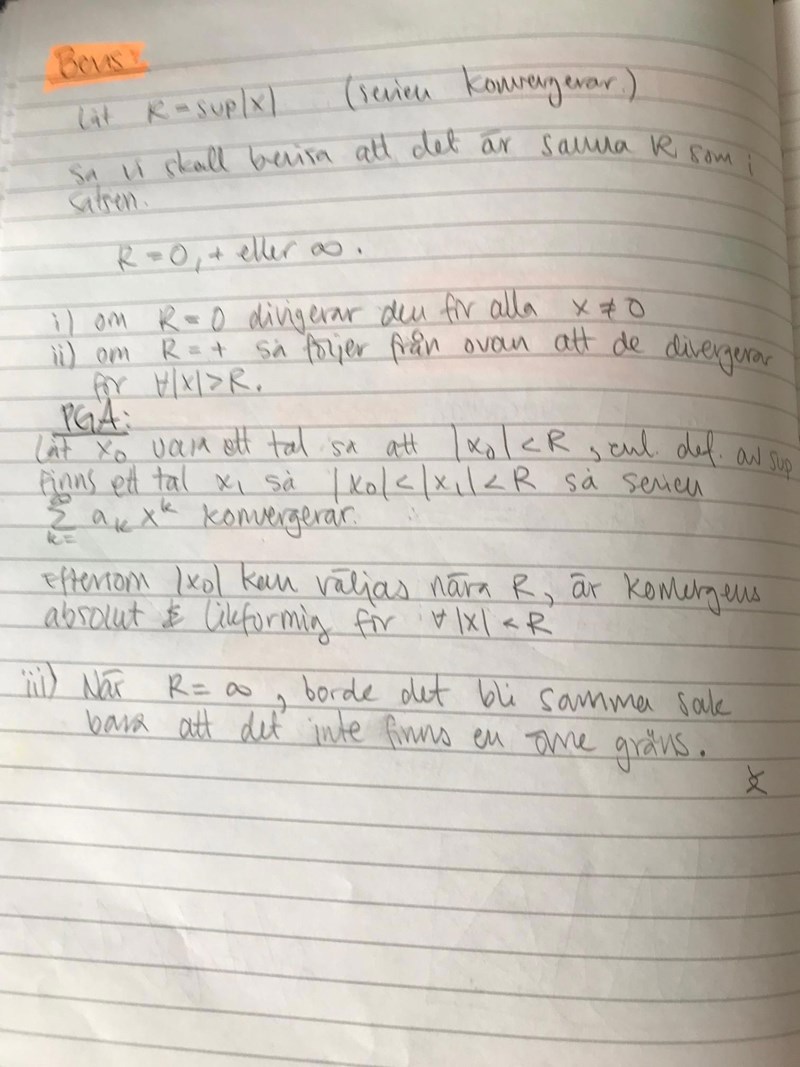 Bevis:
Låt R = sup|x| (serien konvergerar.)
Så vi skall bevisa att det är samma R som i
satsen.
R = 0, + eller ∞.
i) om R = 0 divigerar den för alla x ≠ 0
ii) om R = + så följer från ovan att de divergerar
för ∀|x|>R.
PGA:
Låt x₀ vara ett tal så att |x₀| < R, enl. def. av sup
finns ett tal x₁ så |x₀|<|x₁|<R så serien
∞∑k= aₖ xᵏ konvergerar.
Eftersom |x₀| kan väljas nära R, är konvergens
absolut & likformig för ∀ |x| < R
iii) När R = ∞, borde det bli samma sak
bara att det inte finns en övre gräns.